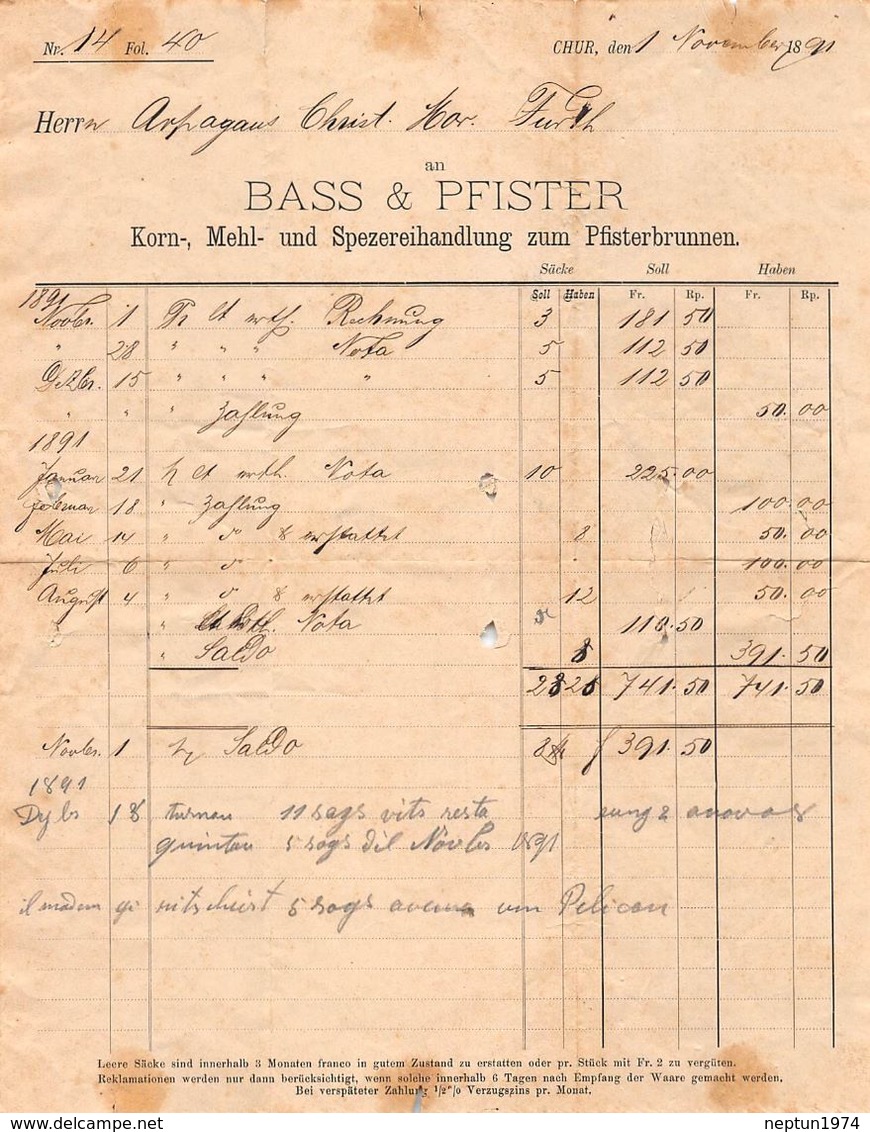 Nr. 14 Fol. 40 CHUR, den 1 November 1891
Herrn Arpagaus Christ. Furth
an
BASS & PFISTER
Korn-, Mehl- und Spezereihandlung zum Pfisterbrunnen.
Säcke Soll Haben
Soll Haben Fr. Rp. Fr. Rp.
1891
Novbr. 1 Rechnung 3 181 50
" 28 " " " Nota 5 112 50
Dezbr. 15 " " " " 5 112 50
" " " Zahlung 50. 00
1891
Januar 21 Nota 10 225.00
Februar 18 " Zahlung 100.00
Mai 14 " & erstattet 8 50. 00
Juli 6 " 100.00
August 4 " & erstattet 12 50. 00
" Nota 118.50
" Saldo 8 391.50
28 28 741.50 741.50
Novbr. 1 Saldo 8 391.50
1891
18 11 sags vits resta
5 sogs dil Novbs 1891
5 sogs avena Pelican
Leere Säcke sind innerhalb 3 Monaten franco in gutem Zustand zu erstatten oder pr. Stück mit Fr. 2 zu vergüten.
Reklamationen werden nur dann berücksichtigt, wenn solche innerhalb 6 Tagen nach Empfang der Waare gemacht werden.
Bei verspäteter Zahlung 1/2 % Verzugszins pr. Monat.
neptun1974